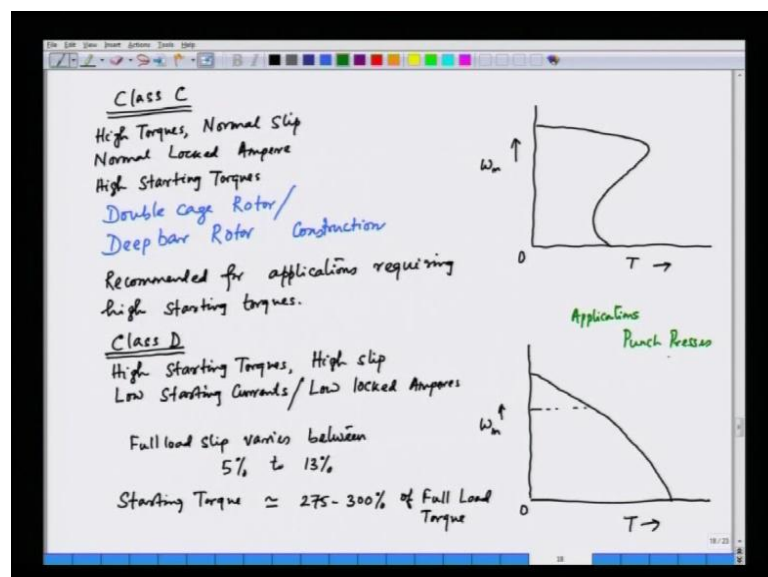 File Edit View Insert Actions Tools Help
Class C
High Torques, Normal Slip
Normal Locked Ampere
High Starting Torques
Double cage Rotor/
Deep bar Rotor Construction
Recommended for applications requiring
high starting torques.
ωm ↑
0
T →
Class D
High Starting Torques, High slip
Low Starting Currents/Low locked Amperes
Full load slip varies between
5% to 13%
Starting Torque ≃ 275-300% of Full Load
Torque
Applications
Punch Presses
ωm ↑
0
T →
18/23
18